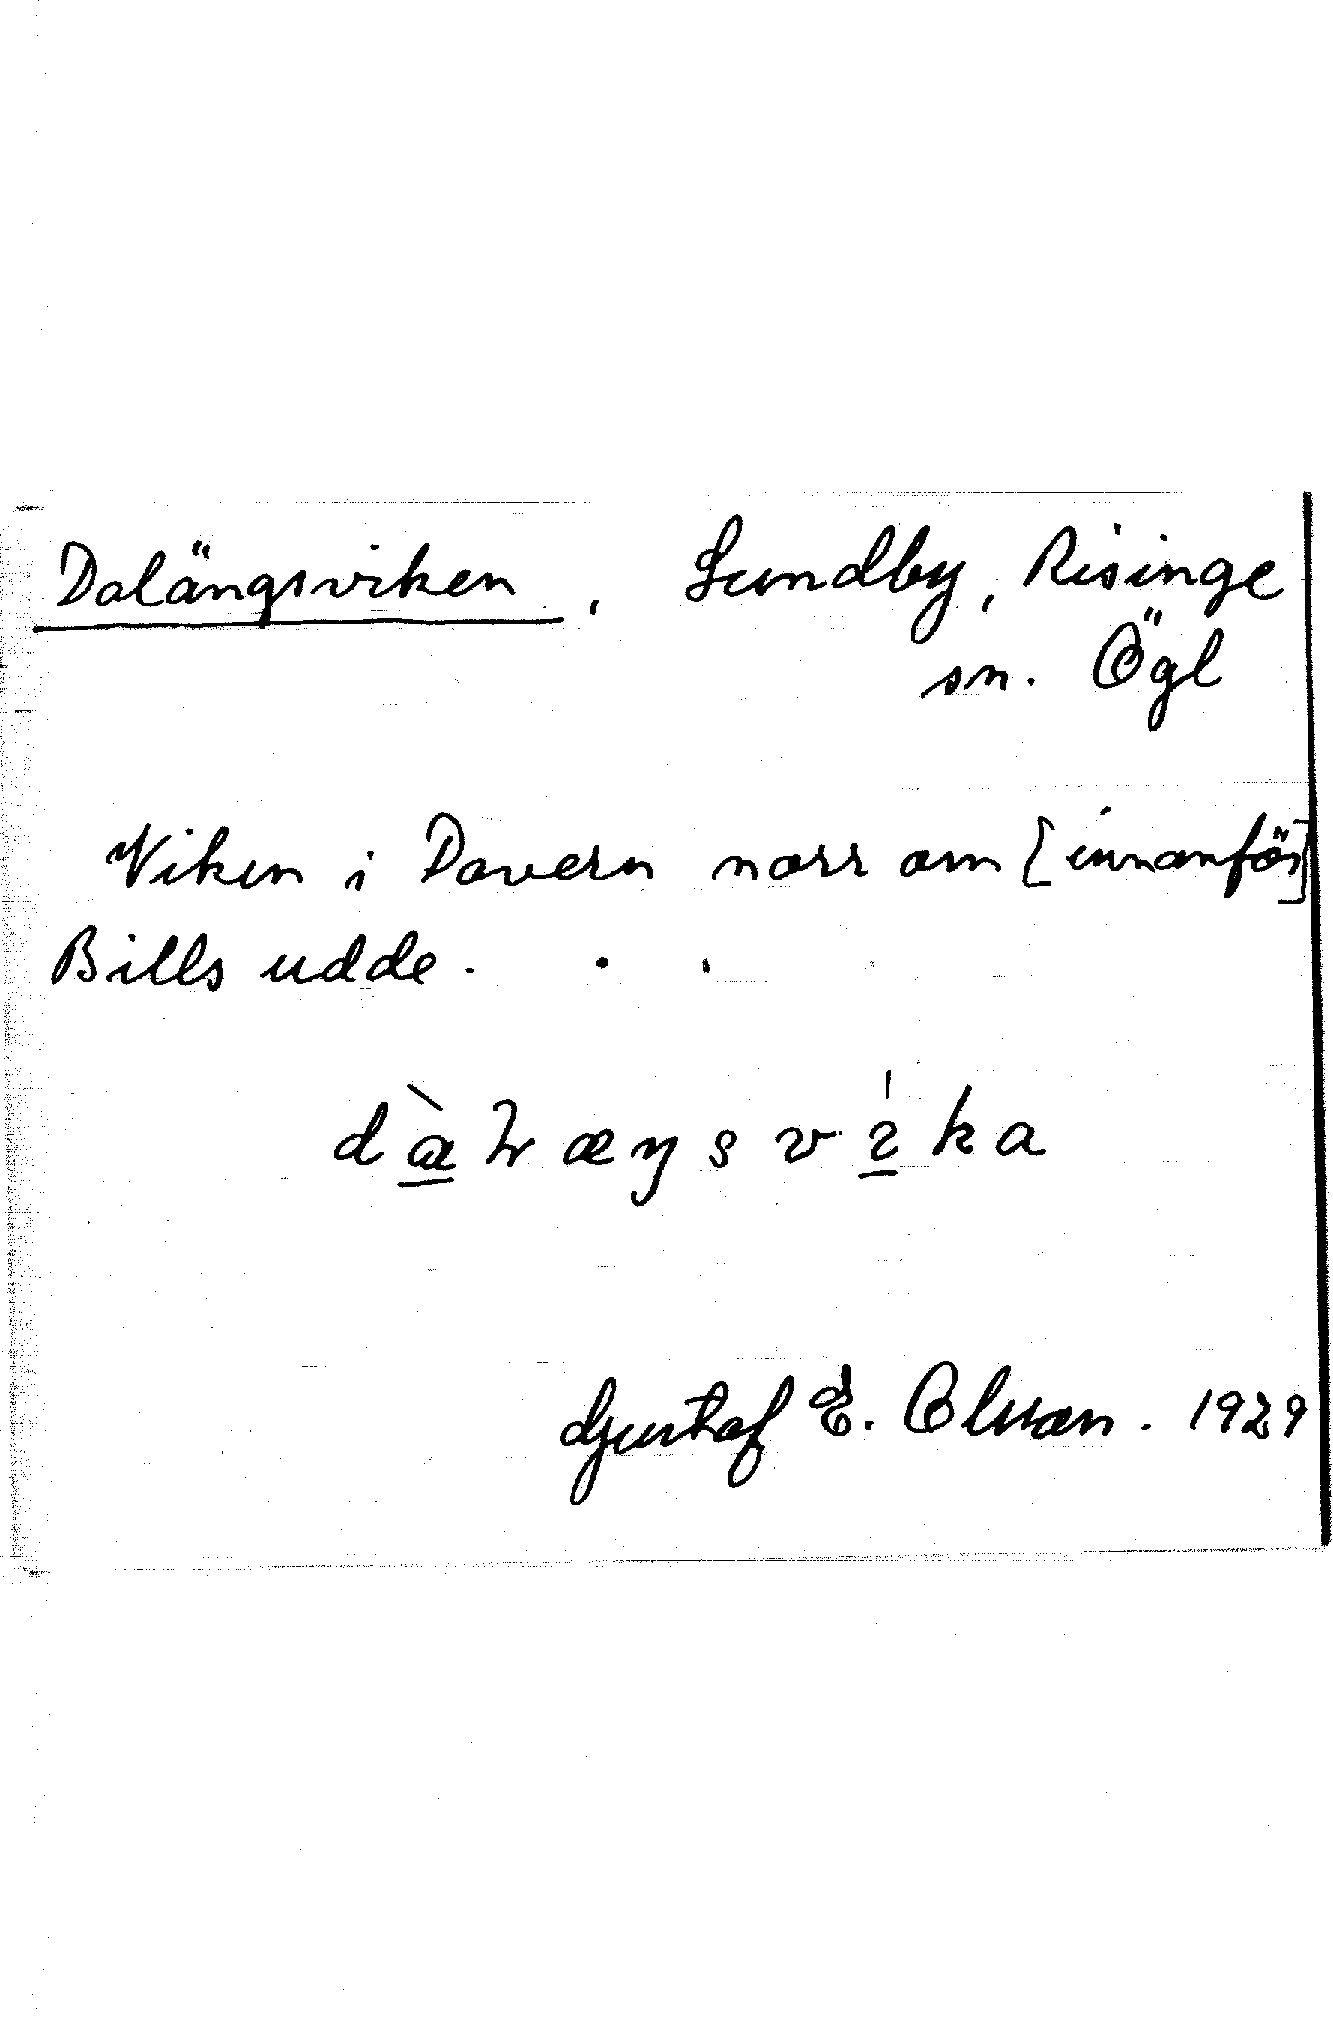 Dalängsviken, Lundby, Risinge
sn. Ögl
Viken i Dovern norr om [innanför]
Bills udde.
Gustaf E. Olsson. 1929